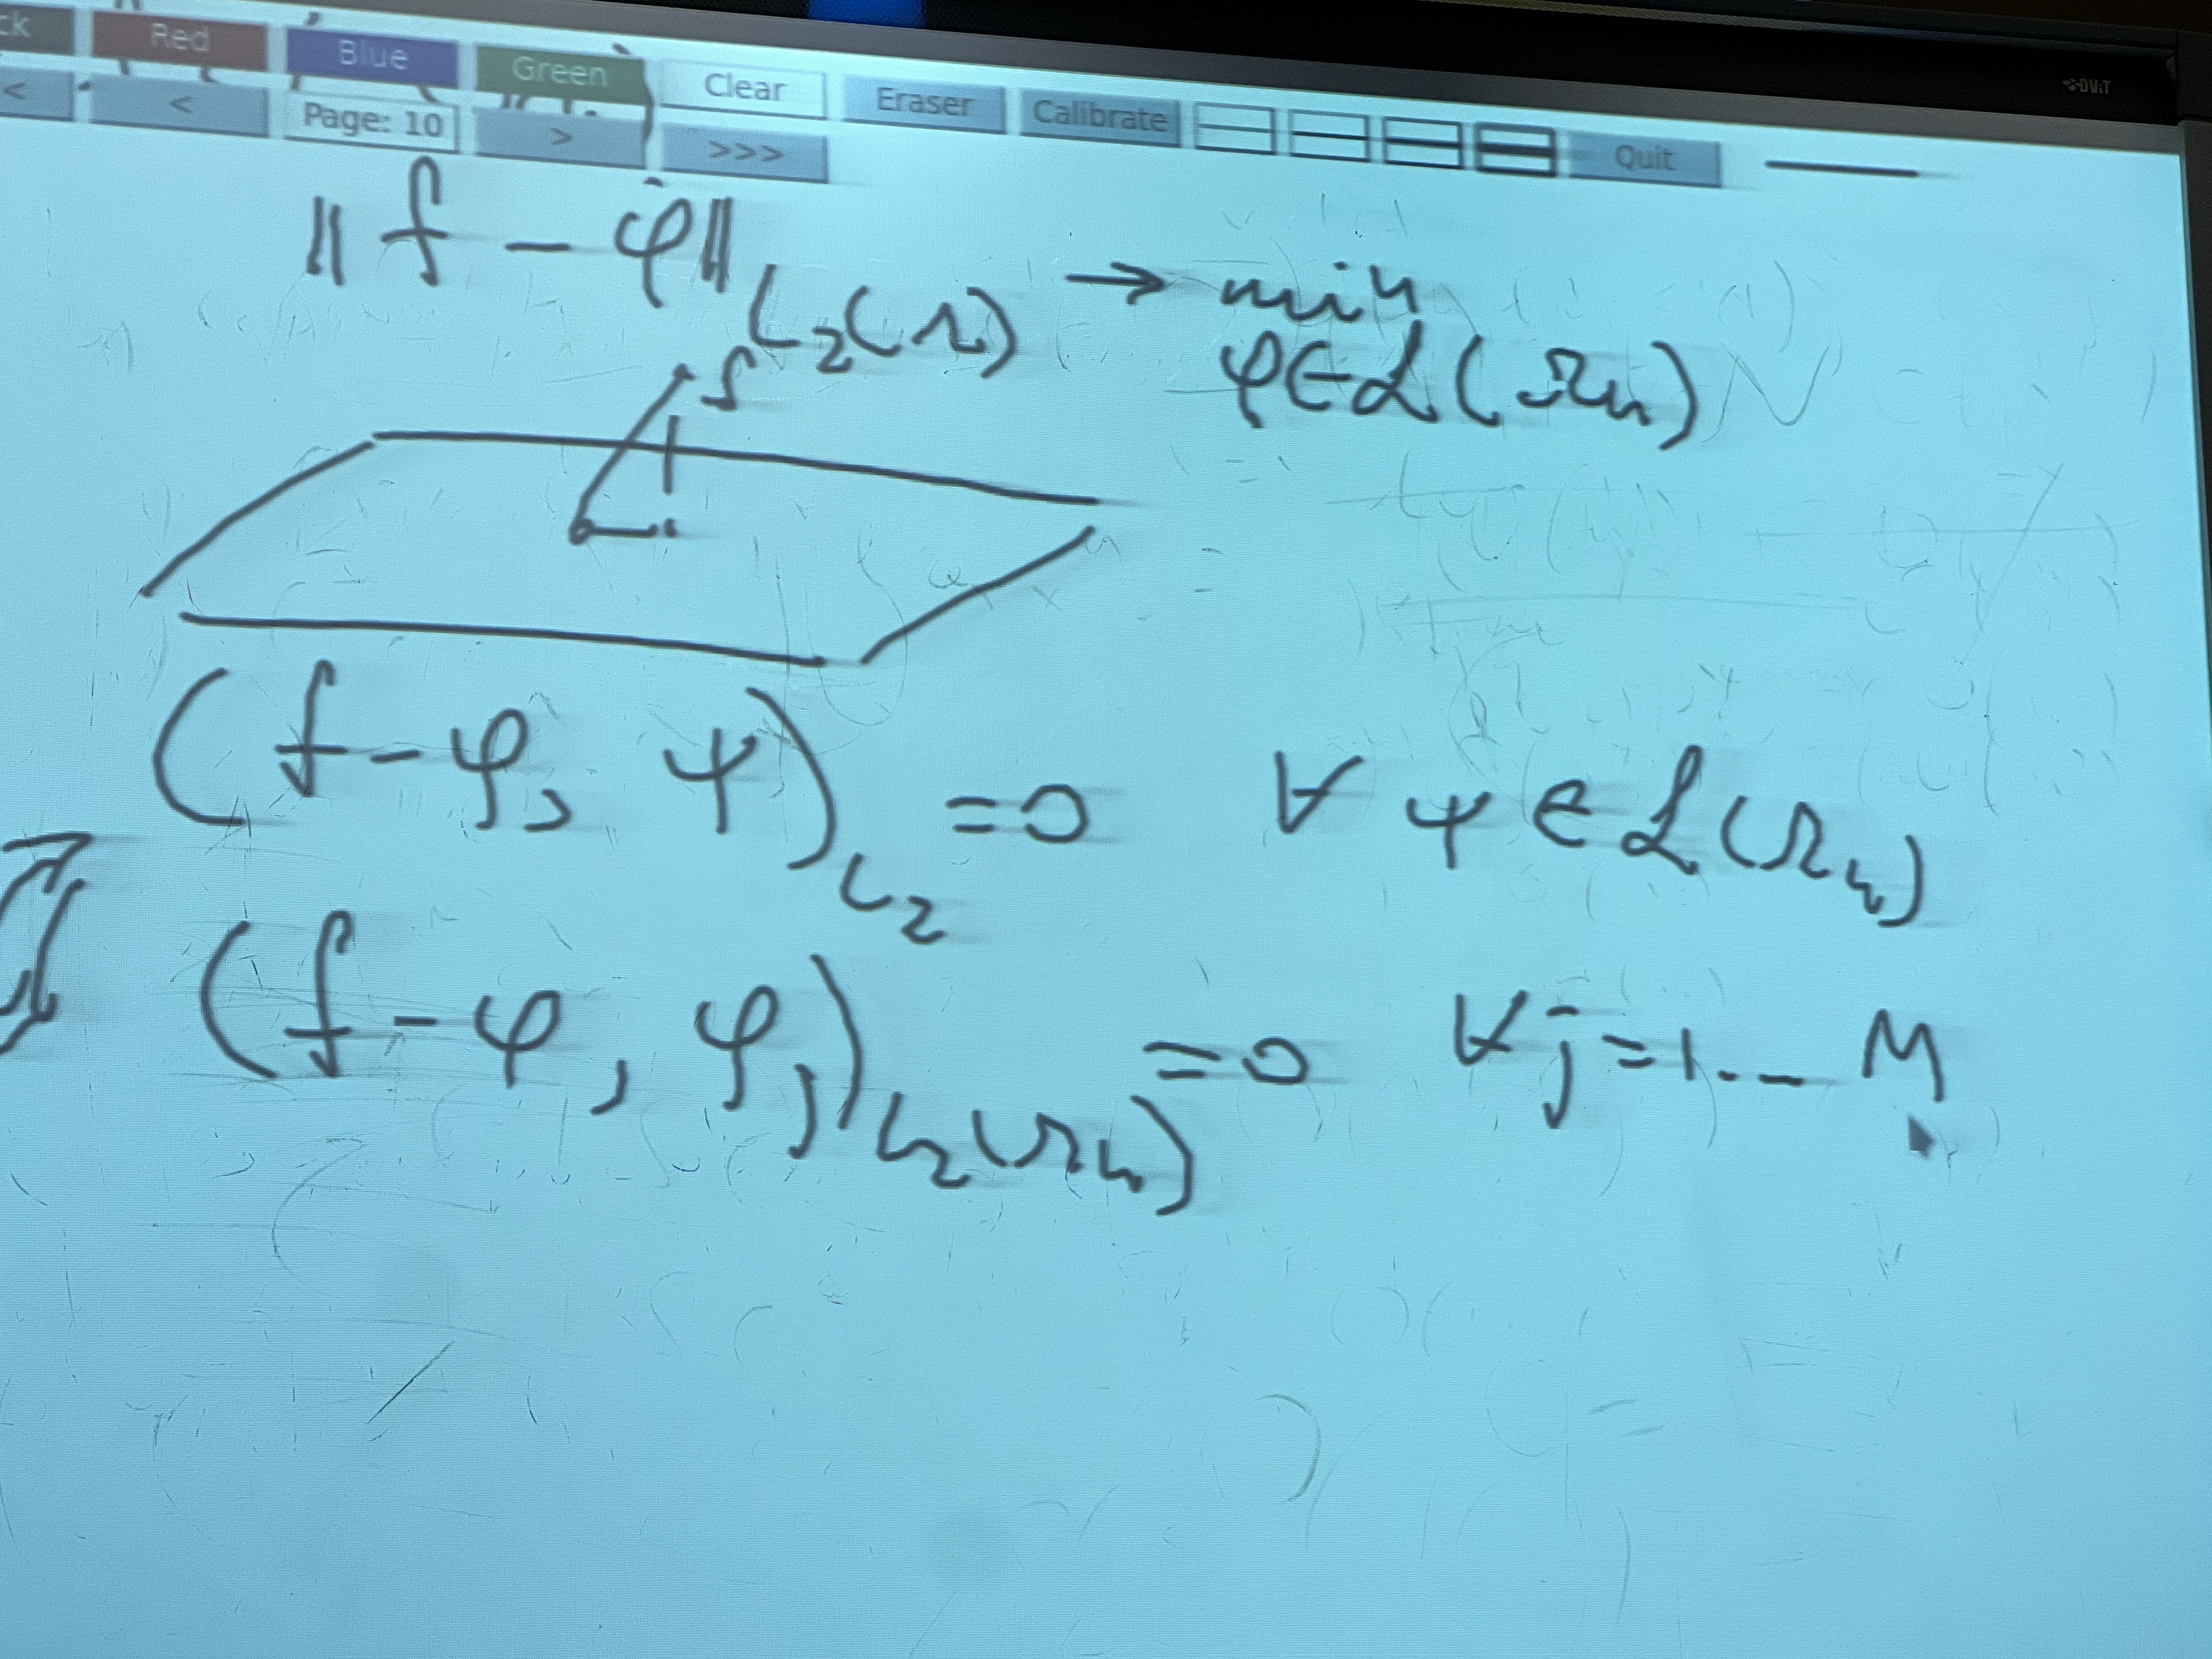 Red Blue Green Clear Eraser Calibrate Quit
< < Page: 10 > >>>
DViT
‖ f - φ ‖ L₂(Ω) → min
φ ∈ ℒ(Ωₕ)
f
(f - φ, ψ) L₂ = 0 ∀ ψ ∈ ℒ(Ωₕ)
(f - φ, φⱼ) L₂(Ωₕ) = 0 ∀ j = 1 ... M